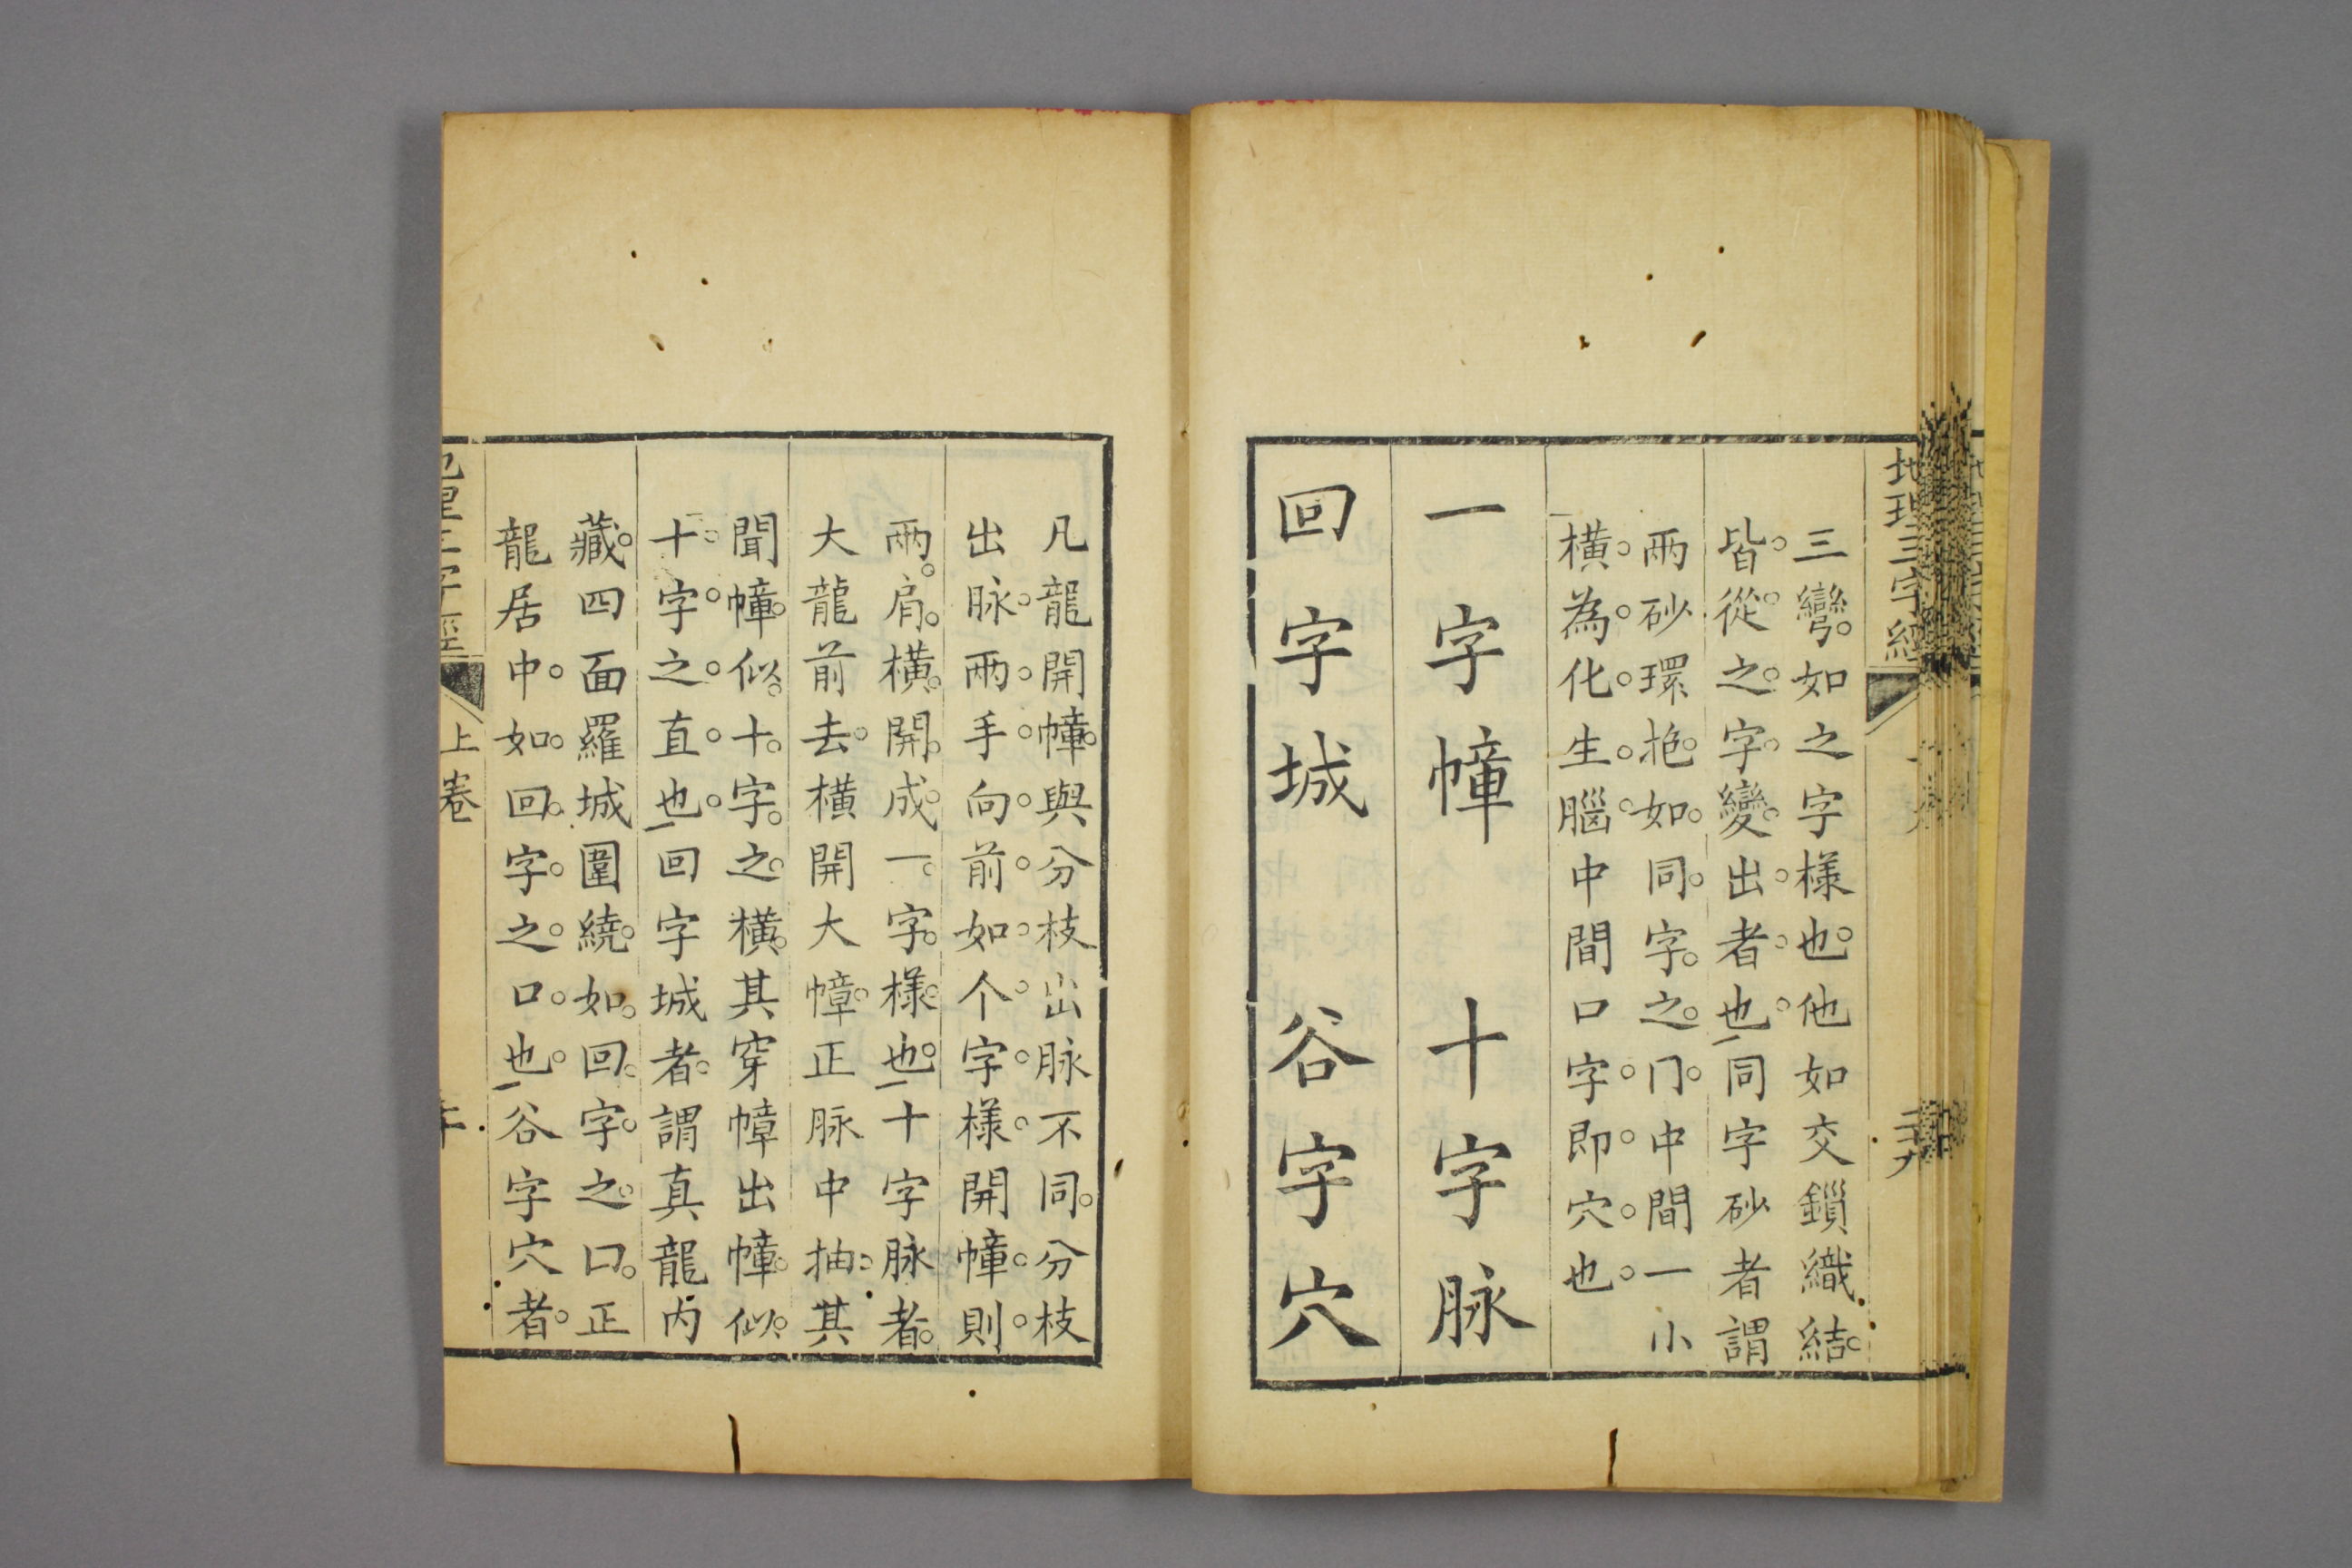 地理三字經
三彎如之字樣也他如交鎖織結
皆從之字變出者也同字砂者謂
兩砂環抱如同字之冂中間一小
橫為化生腦中間口字即穴也
一字幛 十字脉
回字城 谷字穴
凡龍開幛與分枝出脉不同分枝
出脉兩手向前如个字樣開幛則
兩肩橫開成一字樣也十字脉者
大龍前去橫開大幛正脉中抽其
聞幛似十字之橫其穿幛出幛似
十字之直也回字城者謂真龍內
藏四面羅城圍繞如回字之囗正
龍居中如回字之口也谷字穴者
地理三字經
上卷